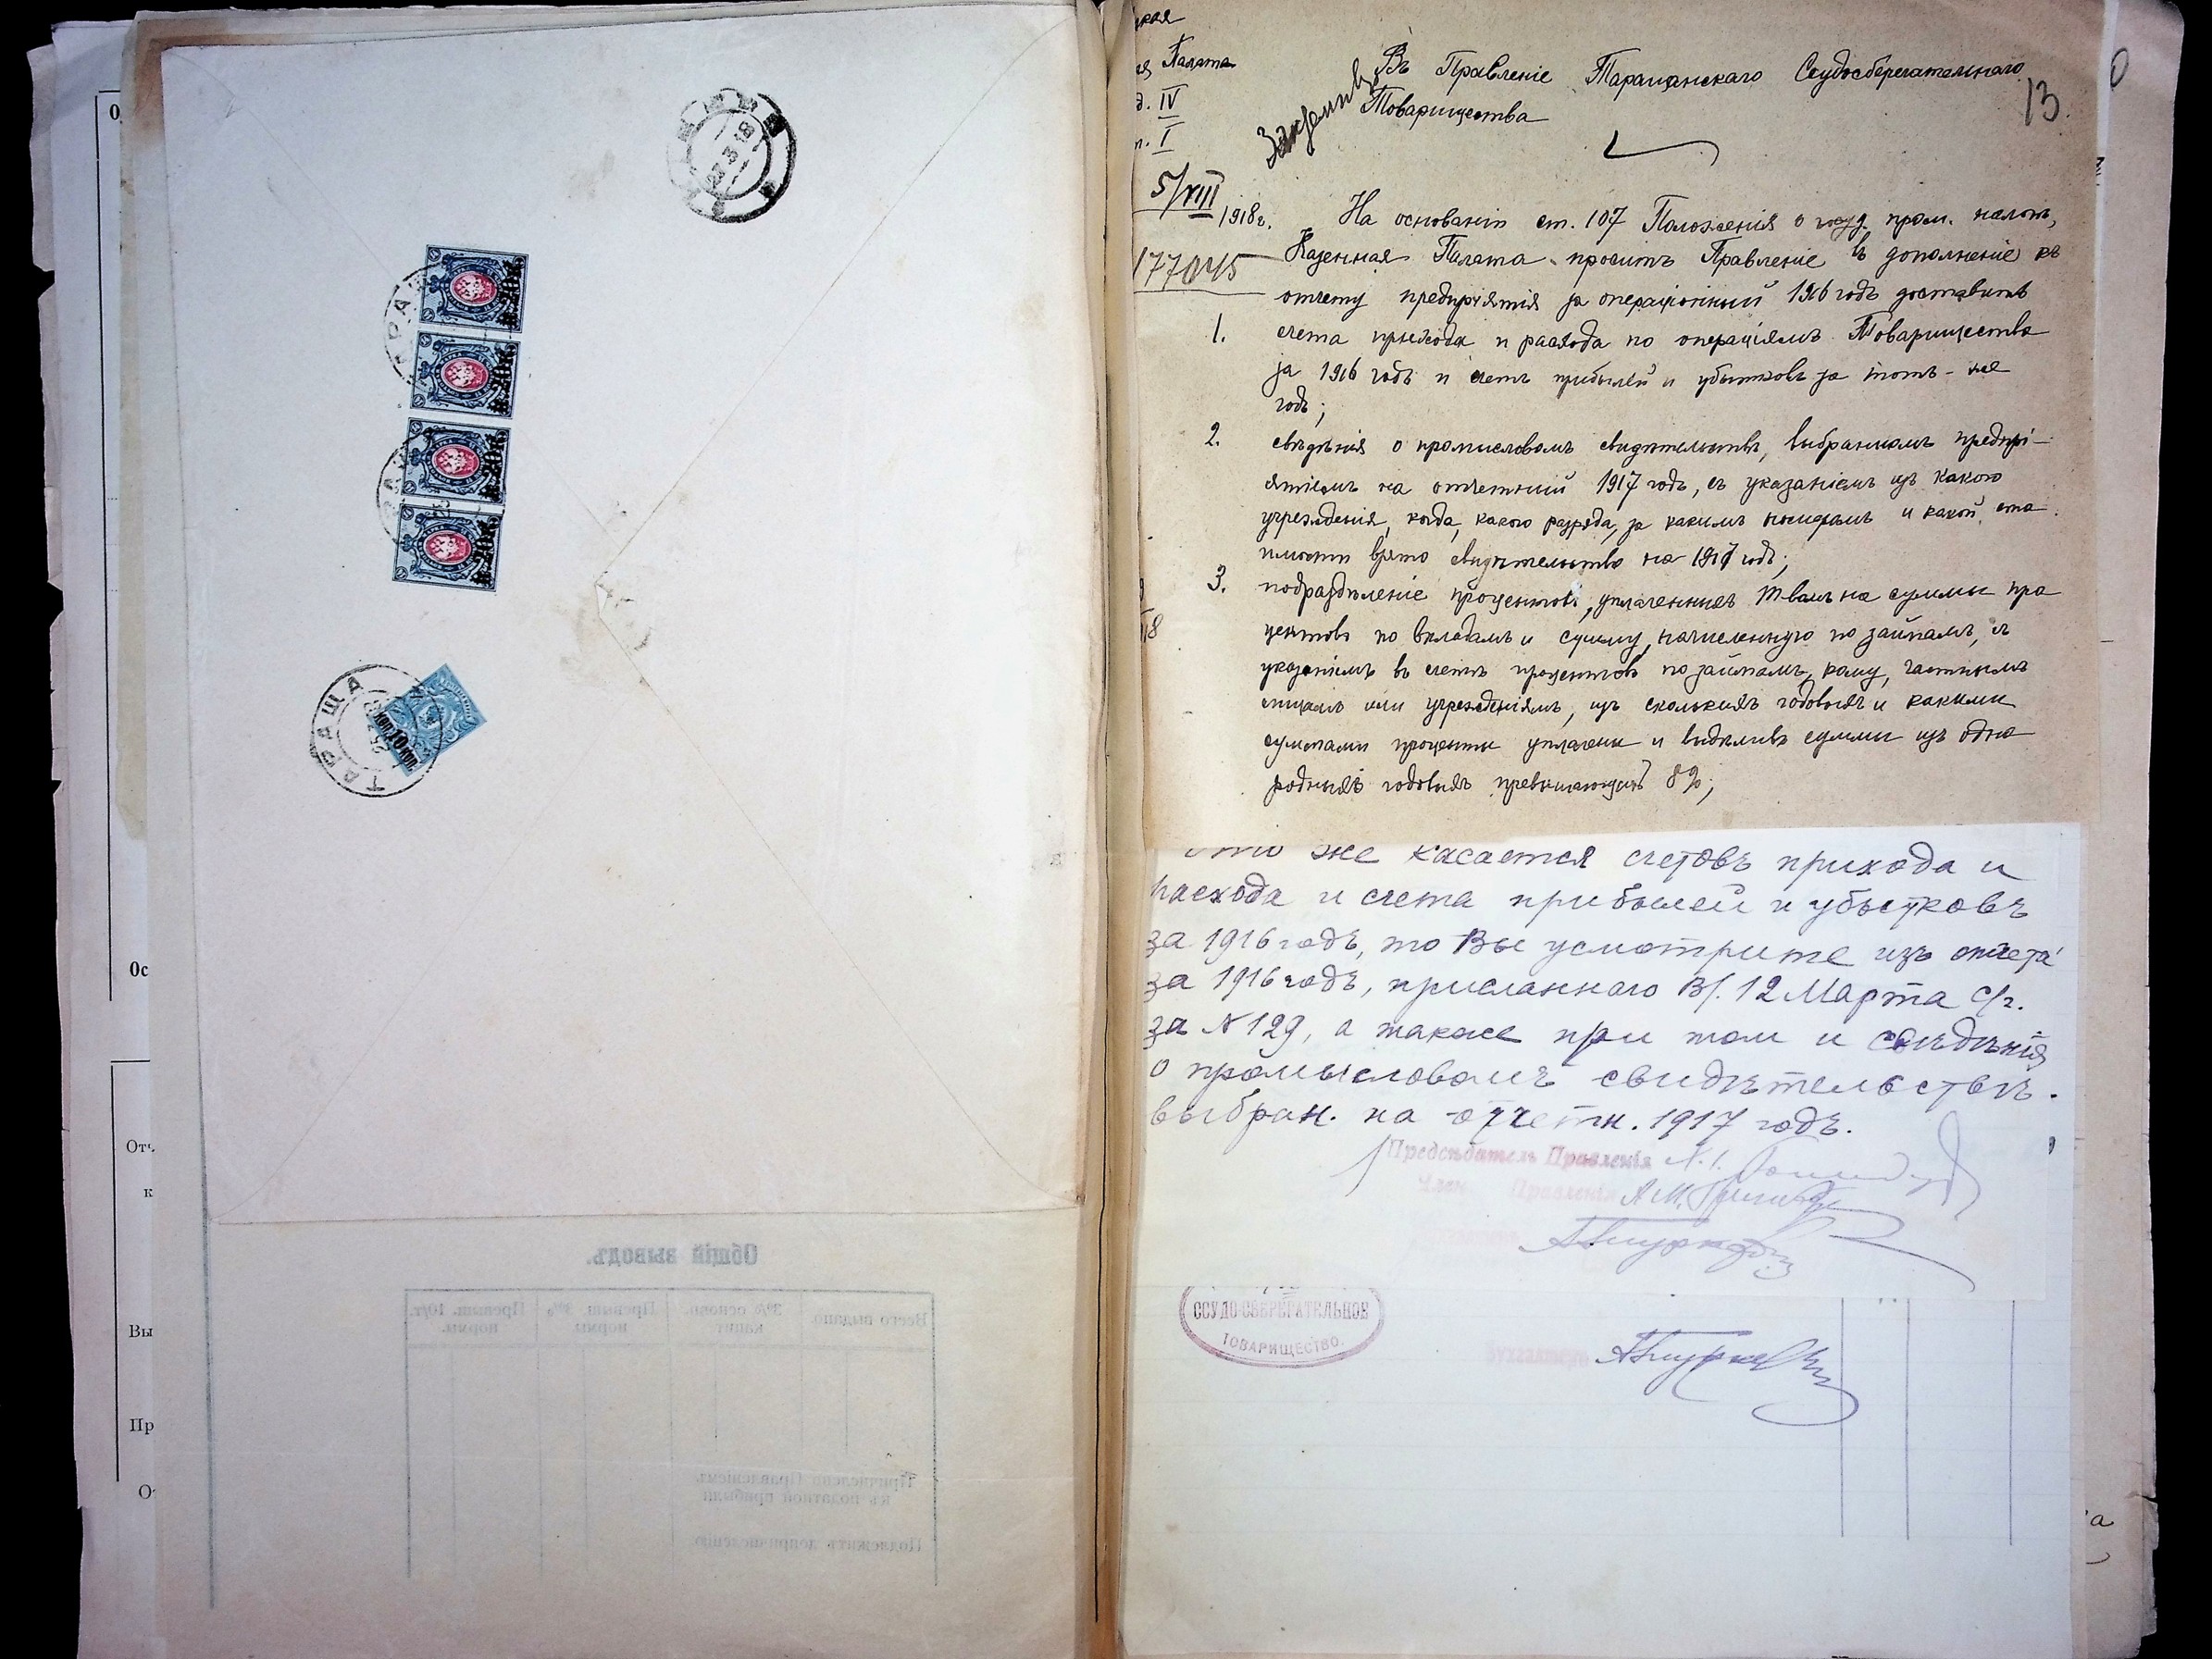 О
Ос
Отч.
к
Вы
Пр
О
ТАРАЩА
25
коп. 10 коп.
23 3 18
Общій выводъ.
Всего выдано.
3% основн. капит.
Превыш. 3% нормы.
Превыш. 10/т. нормы.
Причислено Правленіемъ
къ податной прибыли
Подлежитъ допричисленію
Палата
IV
I
5/VIII 1918 г.
177045
13.
Въ Правленіе Таращанскаго Ссудосберегательнаго
Товарищества
На основаніи ст. 107 Положенія о госуд. пром. налогѣ,
Казенная Палата проситъ Правленіе въ дополненіе къ
отчету предпріятія за операціонный 1916 годъ доставить
1. счета прихода и расхода по операціямъ Товарищества
за 1916 годъ и счетъ прибылей и убытковъ за тотъ-же
годъ;
2. свѣдѣнія о промысловомъ свидѣтельствѣ, выбранномъ предпрі-
ятіемъ на отчетный 1917 годъ, съ указаніемъ изъ какого
учрежденія, когда, какого разряда, за какимъ номеромъ и какой сто
имости взято свидѣтельство на 1917 годъ;
3. подраздѣленіе процентовъ, уплаченныхъ Т-вомъ на суммы про
центовъ по вкладамъ и сумму, начисленную по займамъ, съ
указаніемъ въ счетѣ процентовъ по займамъ, кому, частнымъ
лицамъ или учрежденіямъ, изъ сколькихъ годовыхъ и какими
суммами проценты уплачены и выдѣливъ суммы изъ одно
родныхъ годовыхъ превышающихъ 8%;
что же касается счетовъ прихода и
расхода и счета прибылей и убытковъ
за 1916 годъ, то Вы усмотрите изъ отчета
за 1916 годъ, присланнаго В/. 12 Марта с/г.
за N 129, а также при томъ и свѣдѣнія
о промысловомъ свидѣтельствѣ.
выбран. на отчетн. 1917 годъ.
Предсѣдатель Правленія
Член Правленія А. М.
ССУДО-СБЕРЕГАТЕЛЬНОЕ
ТОВАРИЩЕСТВО.
Бухгалтеръ
а